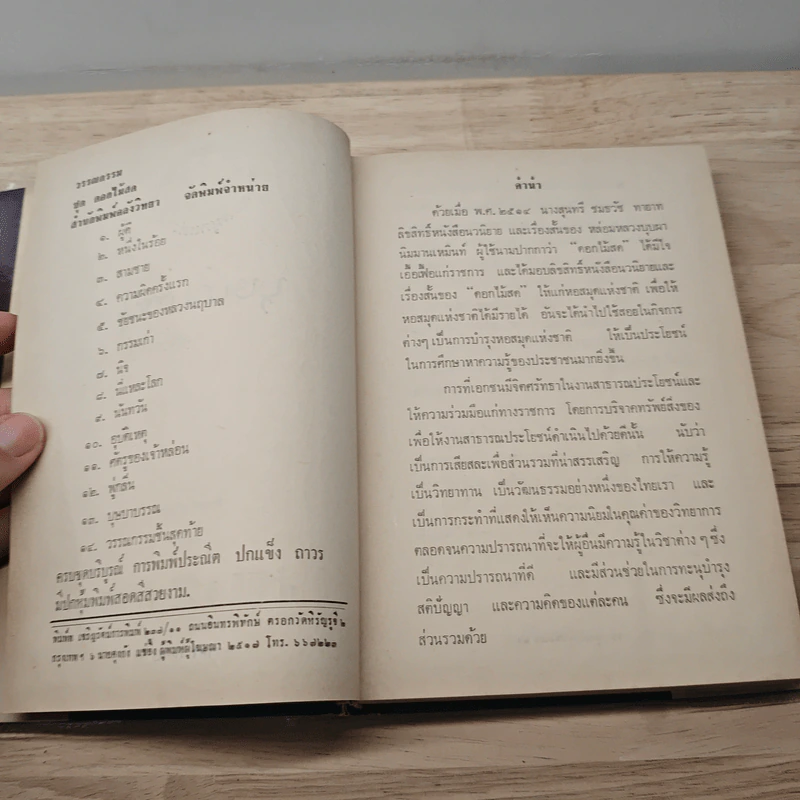 วรรณกรรม
ชุด ดอกไม้สด
สำนักพิมพ์คลังวิทยา จัดพิมพ์จำหน่าย
๑. ผู้ดี
๒. หนึ่งในร้อย
๓. สามชาย
๔. ความผิดครั้งแรก
๕. ชัยชนะของหลวงนฤบาล
๖. กรรมเก่า
๗. นิจ
๘. นี่แหละโลก
๙. นันทวัน
๑๐. อุบัติเหตุ
๑๑. ศัตรูของเจ้าหล่อน
๑๒. พู่กลิ่น
๑๓. บุษบาบรรณ
๑๔. วรรณกรรมชิ้นสุดท้าย
ครบชุดบริบูรณ์ การพิมพ์ประณีต ปกแข็ง ถาวร
มีปกหุ้มพิมพ์สอดสีสวยงาม.
พิมพ์ที่ เจริญรัตน์การพิมพ์ ๒๓๘/๑๑ ถนนอินทรพิทักษ์ ตรอกวัดหิรัญรูจี ๒
กรุงเทพฯ ๖ นาย แซ่อึ้ง ผู้พิมพ์ผู้โฆษณา ๒๕๑๘ โทร. ๖๖๘๒๒๓
คำนำ
ด้วยเมื่อ พ.ศ. ๒๕๑๔ นางสุนทรี ชมธวัช ทายาท
ลิขสิทธิ์หนังสือนวนิยาย และเรื่องสั้นของ หม่อมหลวงบุบผา
นิมมานเหมินท์ ผู้ใช้นามปากกาว่า “ดอกไม้สด” ได้มีใจ
เอื้อเฟื้อแก่ราชการ และได้มอบลิขสิทธิ์หนังสือนวนิยายและ
เรื่องสั้นของ “ดอกไม้สด” ให้แก่หอสมุดแห่งชาติ เพื่อให้
หอสมุดแห่งชาติได้มีรายได้ อันจะได้นำไปใช้สอยในกิจการ
ต่างๆ เป็นการบำรุงหอสมุดแห่งชาติ ให้เป็นประโยชน์
ในการศึกษาหาความรู้ของประชาชนมากยิ่งขึ้น
การที่เอกชนมีจิตศรัทธาในงานสาธารณประโยชน์และ
ให้ความร่วมมือแก่ทางราชการ โดยการบริจาคทรัพย์สิ่งของ
เพื่อให้งานสาธารณประโยชน์ดำเนินไปด้วยดีนั้น นับว่า
เป็นการเสียสละเพื่อส่วนรวมที่น่าสรรเสริญ การให้ความรู้
เป็นวิทยาทาน เป็นวัฒนธรรมอย่างหนึ่งของไทยเรา และ
เป็นการกระทำที่แสดงให้เห็นความนิยมในคุณค่าของวิทยาการ
ตลอดจนความปรารถนาที่จะให้ผู้อื่นมีความรู้ในวิชาต่าง ๆ ซึ่ง
เป็นความปรารถนาที่ดี และมีส่วนช่วยในการทะนุบำรุง
สติปัญญา และความคิดของแต่ละคน ซึ่งจะมีผลส่งถึง
ส่วนรวมด้วย